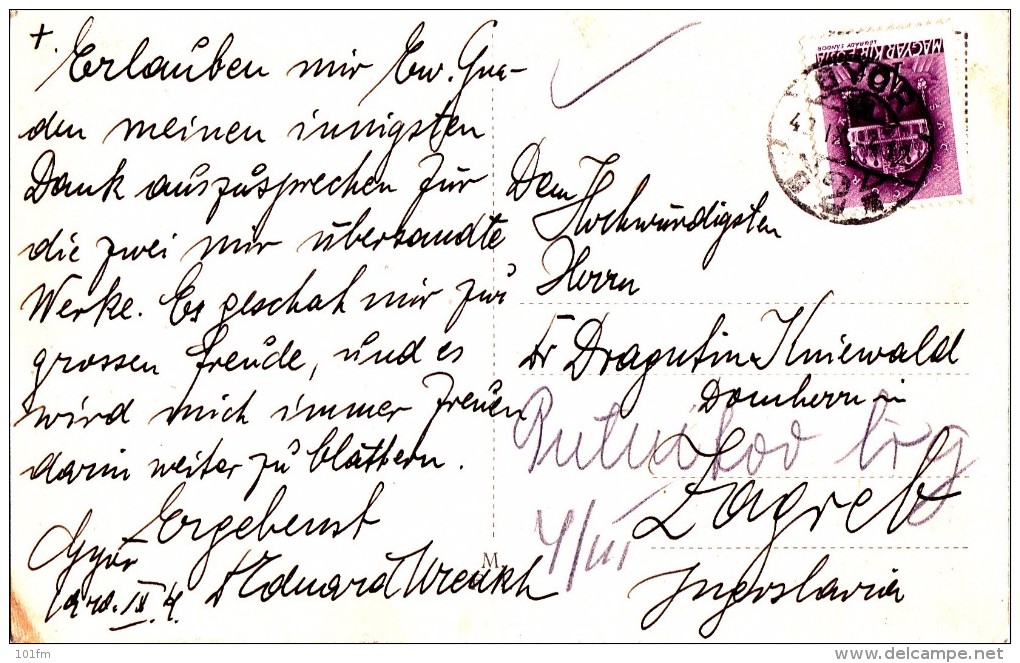 +
Erlauben mir Ew. Gna-
den meinen innigsten
Dank auszusprechen für
die zwei mir übersandte
Werke. Es geschah mir zur
grossen Freude, und es
wird mich immer freuen
darin weiter zu blättern.
Ergebenst
Győr
Dr Eduard
940. IX. 4.
MAGYAR KIR. POSTA
LÉGRÁDY SÁNDOR
GYŐR
Dem Hochwürdigsten
Herrn
Dr Dragutin Kniewald
Domherrn in
Zagreb
Jugoslavia
M
101fm
delcampe.net